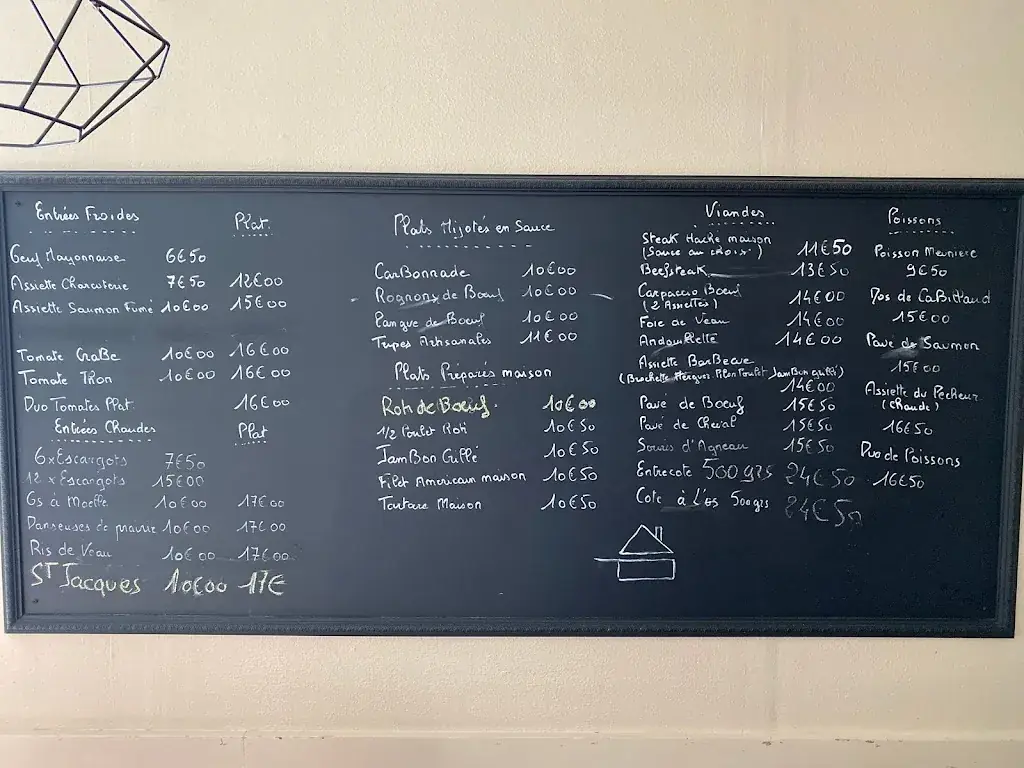 Entrées Froides Plat.
Oeuf Mayonnaise 6€50
Assiette Charcuterie 7€50 12€00
Assiette Saumon Fumé 10€00 15€00
Tomate CraBe 10€00 16€00
Tomate Thon 10€00 16€00
Duo Tomates Plat. 16€00
Entrées Chaudes Plat
6xEscargots 7€50
12 x Escargots 15€00
Os à Moelle 10€00 17€00
Danseuses de prairie 10€00 17€00
Ris de Veau 10€00 17€00
ST Jacques 10€00 17€
Plats Mijotés en Sauce
CarBonnade 10€00
Rognons de Boeuf 10€00
Langue de Boeuf 10€00
Tripes Artisanales 11€00
Plats Préparés maison
Roti de Boeuf. 10€00
1/2 Poulet Roti 10€50
JamBon Grillé 10€50
Filet Americain maison 10€50
Tartare Maison 10€50
Viandes
Steak Haché maison 11€50
(Sauce au choix)
Beefsteak 13€50
Carpaccio Boeuf 14€00
(2 Assiettes)
Foie de Veau 14€00
Andouillette 14€00
Assiette BarBecue
(Brochette Mergues Pilon Poulet JamBon Grillé)
14€00
Pavé de Boeuf 15€50
Pavé de Cheval 15€50
Souris d'Agneau 15€50
Entrecote 500grs 24€50
Cote à L'os 500grs 24€50
Poissons
Poisson Meuniere
9€50
Dos de CaBillaud
15€00
Pavé de Saumon
15€00
Assiette du Pecheur
(Chaude)
16€50
Duo de Poissons
16€50